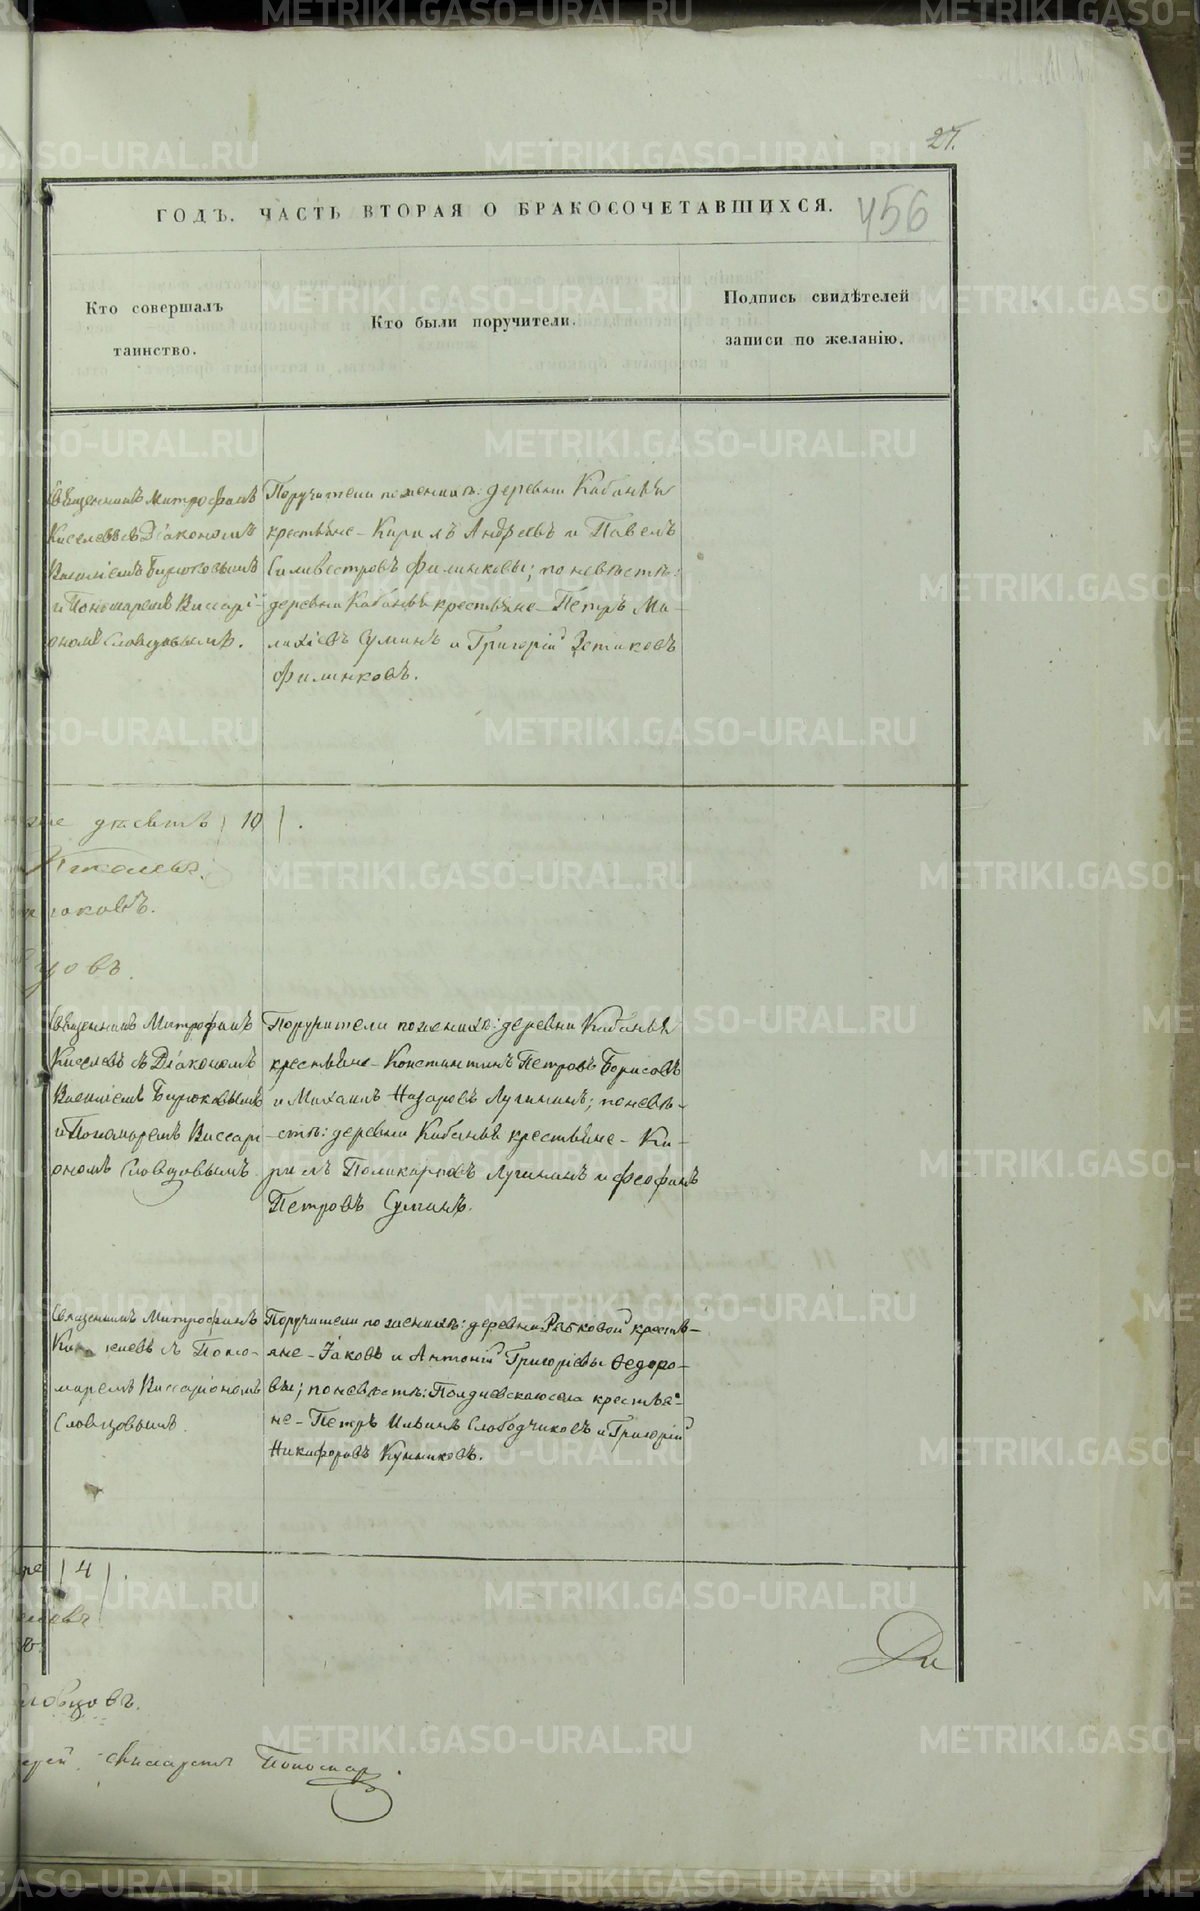 27.
ГОДЪ. ЧАСТЬ ВТОРАЯ О БРАКОСОЧЕТАВШИХСЯ.
456
Кто совершалъ
таинство.
Кто были поручители.
Подпись свидѣтелей
записи по желанію.
Священникъ Митрофанъ
Киселевъ съ Діакономъ
Василіемъ Бирюковымъ
и Пономаремъ Виссарі-
ономъ Словцовымъ.
Поручители по женихѣ: деревни Кабаньи
крестьяне – Кирилъ Андреевъ и Павелъ
Силивестровъ Филинковы; по невѣстѣ:
деревни Кабаньи крестьяне – Петръ Ма-
лахіевъ Суминъ и Григорій
Филинковъ.
десять / 10 / .
юковъ.
цовъ.
Священникъ Митрофанъ
Киселевъ съ Діакономъ
Василіемъ Бирюковымъ
и Пономаремъ Виссарі-
ономъ Словцовымъ
Поручители по женихѣ: деревни Кабаньи
крестьяне – Константинъ Петровъ Борисовъ
и Михаилъ Назаровъ Лугининъ; по невѣ-
стѣ: деревни Кабаньи крестьяне – Ки-
рилъ Поликарповъ Лугининъ и Феофанъ
Петровъ Суминъ.
Священникъ Митрофанъ
Киселевъ съ Поно-
маремъ Виссаріономъ
Словцовымъ.
Поручители по женихѣ: деревни Рябковой кресть-
яне – Іаковъ и Антоній Григорьевы Ѳедоро-
вы; по невѣстѣ: Полдневскаго села крестья-
не – Петръ Ильинъ Слободчиковъ и Григорій
Никифоровъ Кунниковъ.
ре / 4 / .
ловцовъ.
Пономар
Ди
METRIKI.GASO-URAL.RU